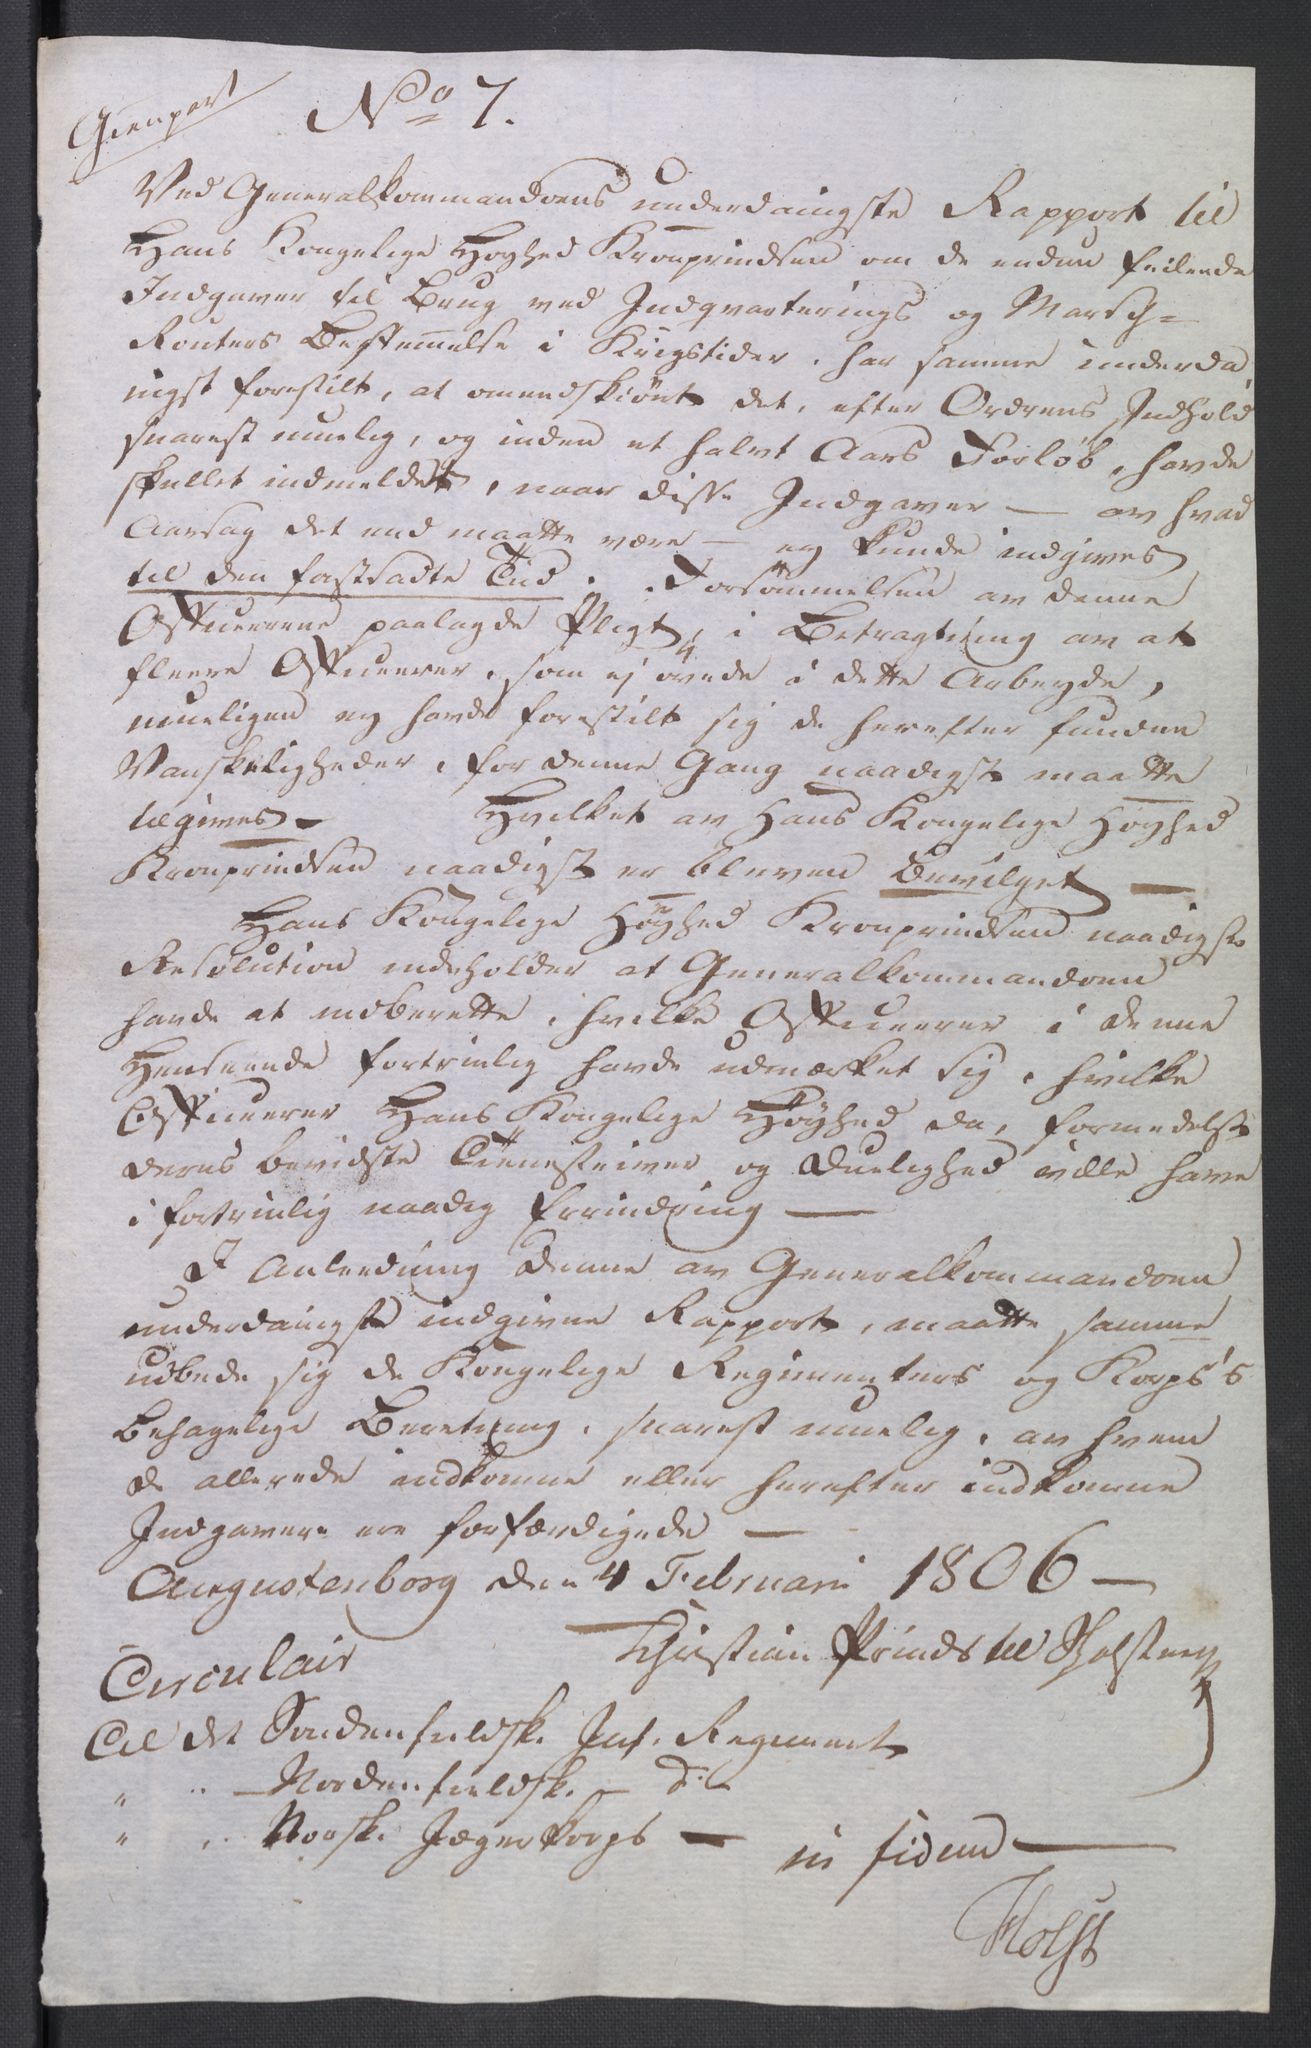 Gienpart
No 7.
Ved Generalkommandoens underdanigste Rapport til
Hans Kongelige Høyhed Kronprindsen om de endnu feilende
Indgaver til Brug ved Indqvarterings og Marsch=
Routers Bestemmelse i Krigstider, har samme underda
nigst forestilt, at omendskiönt det, efter Ordrens Indhold
snarest muelig, og inden et halvt Aars Forlöb, havde
skullet indmeldes, naar disse Indgaver — av hvad
Aarsag det end maatte være — ey kunde indgives
til den fastsadte Tiid. Forsömmelsen av denne
Officererne paalagde Pligt, i Betragtning av at
fleere Officerer, som ej övede i dette Arbeyde,
mueligen ey havde forestilt sig de herefter fundne
Vanskeligheder, for denne Gang naadigst maatte
tilgives — Hvilket av Hans Kongelige Höyhed
Kronprindsen naadigst er bleven bevilget —
Hans Kongelige Höyhed Kronprindsens naadigste
Resolution indeholder at Generalkommandoen
havde at indberette, hvilke Officerer i denne
Henseende fortrinlig havde udmærket sig, hvilke
Officerer Hans Kongelige Höyhed da, formedelst
deres beviidste Tienesteiver og Duelighed ville have
i fortrinlig naadig Erindring —
I Anledning denne av Generalkommandoen
underdanigst indgivne Rapport, maatte samme
udbede sig de Kongelige Regimenters og Korps's
behagelige Beretning, snarest muelig, av hvem
de allerede indkomne eller herefter indkomne
Indgaver ere forfærdigede —
Augustenborg den 4 Februari 1806 —
Christian Prinds til Holsteen
Circulair
Til det Söndenfieldsk. Inf. Regiment
" " — Nordenfieldsk. — d:o
" " Norsk. Jægerkorps —
in fidem
Holst